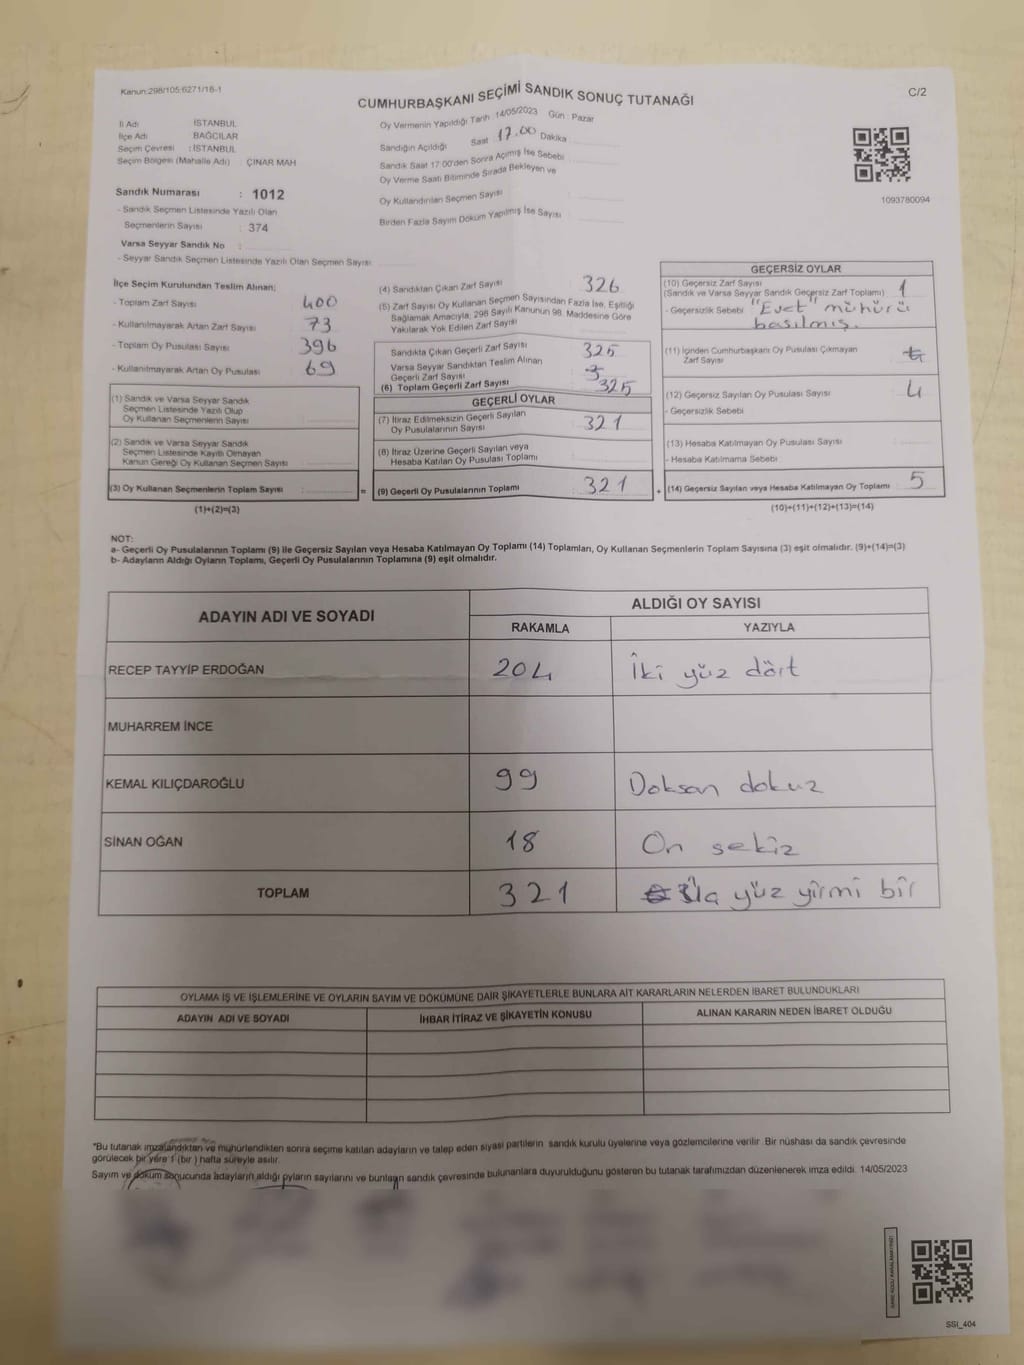 Kanun:298/105;6271/18-1
CUMHURBAŞKANI SEÇİMİ SANDIK SONUÇ TUTANAĞI
C/2
İl Adı : İSTANBUL
İlçe Adı : BAĞCILAR
Seçim Çevresi : İSTANBUL
Seçim Bölgesi (Mahalle Adı) : ÇINAR MAH
Sandık Numarası : 1012
- Sandık Seçmen Listesinde Yazılı Olan
Seçmenlerin Sayısı : 374
Varsa Seyyar Sandık No :
- Seyyar Sandık Seçmen Listesinde Yazılı Olan Seçmen Sayısı:
Oy Vermenin Yapıldığı Tarih :14/05/2023 Gün : Pazar
Sandığın Açıldığı Saat :17.00 Dakika
Sandık Saat 17:00'den Sonra Açımış İse Sebebi
Oy Verme Saati Bitiminde Sırada Bekleyen ve
Oy Kullandırılan Seçmen Sayısı
Birden Fazla Sayım Döküm Yapılmış İse Sayısı
1093780094
İlçe Seçim Kurulundan Teslim Alınan;
- Toplam Zarf Sayısı : 400
- Kullanılmayarak Artan Zarf Sayısı : 73
- Toplam Oy Pusulası Sayısı : 396
- Kullanılmayarak Artan Oy Pusulası : 69
(1) Sandık ve Varsa Seyyar Sandık
Seçmen Listesinde Yazılı Olup
Oy Kullanan Seçmenlerin Sayısı :
(2) Sandık ve Varsa Seyyar Sandık
Seçmen Listesinde Kayıtlı Olmayan
Kanun Gereği Oy Kullanan Seçmen Sayısı :
(3) Oy Kullanan Seçmenlerin Toplam Sayısı :
(1)+(2)=(3)
(4) Sandıktan Çıkan Zarf Sayısı 326
(5) Zarf Sayısı Oy Kullanan Seçmen Sayısından Fazla İse, Eşitliği
Sağlamak Amacıyla, 298 Sayılı Kanunun 98. Maddesine Göre
Yakılarak Yok Edilen Zarf Sayısı
Sandıkta Çıkan Geçerli Zarf Sayısı 325
Varsa Seyyar Sandıktan Teslim Alınan
Geçerli Zarf Sayısı
(6) Toplam Geçerli Zarf Sayısı 325
GEÇERLİ OYLAR
(7) İtiraz Edilmeksizin Geçerli Sayılan
Oy Pusulalarının Sayısı 321
(8) İtiraz Üzerine Geçerli Sayılan veya
Hesaba Katılan Oy Pusulası Toplamı
= (9) Geçerli Oy Pusulalarının Toplamı 321
GEÇERSİZ OYLAR
(10) Geçersiz Zarf Sayısı
(Sandık ve Varsa Seyyar Sandık Geçersiz Zarf Toplamı) : 1
- Geçersizlik Sebebi : "Evet" mühürü
basılmış.
(11) İçinden Cumhurbaşkanı Oy Pusulası Çıkmayan
Zarf Sayısı
(12) Geçersiz Sayılan Oy Pusulası Sayısı : 4
- Geçersizlik Sebebi
(13) Hesaba Katılmayan Oy Pusulası Sayısı
- Hesaba Katılmama Sebebi
+ (14) Geçersiz Sayılan veya Hesaba Katılmayan Oy Toplamı 5
(10)+(11)+(12)+(13)=(14)
NOT:
a- Geçerli Oy Pusulalarının Toplamı (9) ile Geçersiz Sayılan veya Hesaba Katılmayan Oy Toplamı (14) Toplamları, Oy Kullanan Seçmenlerin Toplam Sayısına (3) eşit olmalıdır. (9)+(14)=(3)
b- Adayların Aldığı Oyların Toplamı, Geçerli Oy Pusulalarının Toplamına (9) eşit olmalıdır.
ADAYIN ADI VE SOYADI
ALDIĞI OY SAYISI
RAKAMLA YAZIYLA
RECEP TAYYİP ERDOĞAN 204 İki yüz dört
MUHARREM İNCE
KEMAL KILIÇDAROĞLU 99 Doksan dokuz
SİNAN OĞAN 18 On sekiz
TOPLAM 321 yüz yirmi bir
OYLAMA İŞ VE İŞLEMLERİNE VE OYLARIN SAYIM VE DÖKÜMÜNE DAİR ŞİKAYETLERLE BUNLARA AİT KARARLARIN NELERDEN İBARET BULUNDUKLARI
ADAYIN ADI VE SOYADI İHBAR İTİRAZ VE ŞİKAYETİN KONUSU ALINAN KARARIN NEDEN İBARET OLDUĞU
*Bu tutanak imzalandıktan ve mühürlendikten sonra seçime katılan adayların ve talep eden siyasi partilerin sandık kurulu üyelerine veya gözlemcilerine verilir. Bir nüshası da sandık çevresinde
görülecek bir yere 1 (bir ) hafta süreyle asılır.
Sayım ve döküm sonucunda adayların aldığı oyların sayılarını ve bunların sandık çevresinde bulunanlara duyurulduğunu gösteren bu tutanak tarafımızdan düzenlenerek imza edildi. 14/05/2023
SSI_404